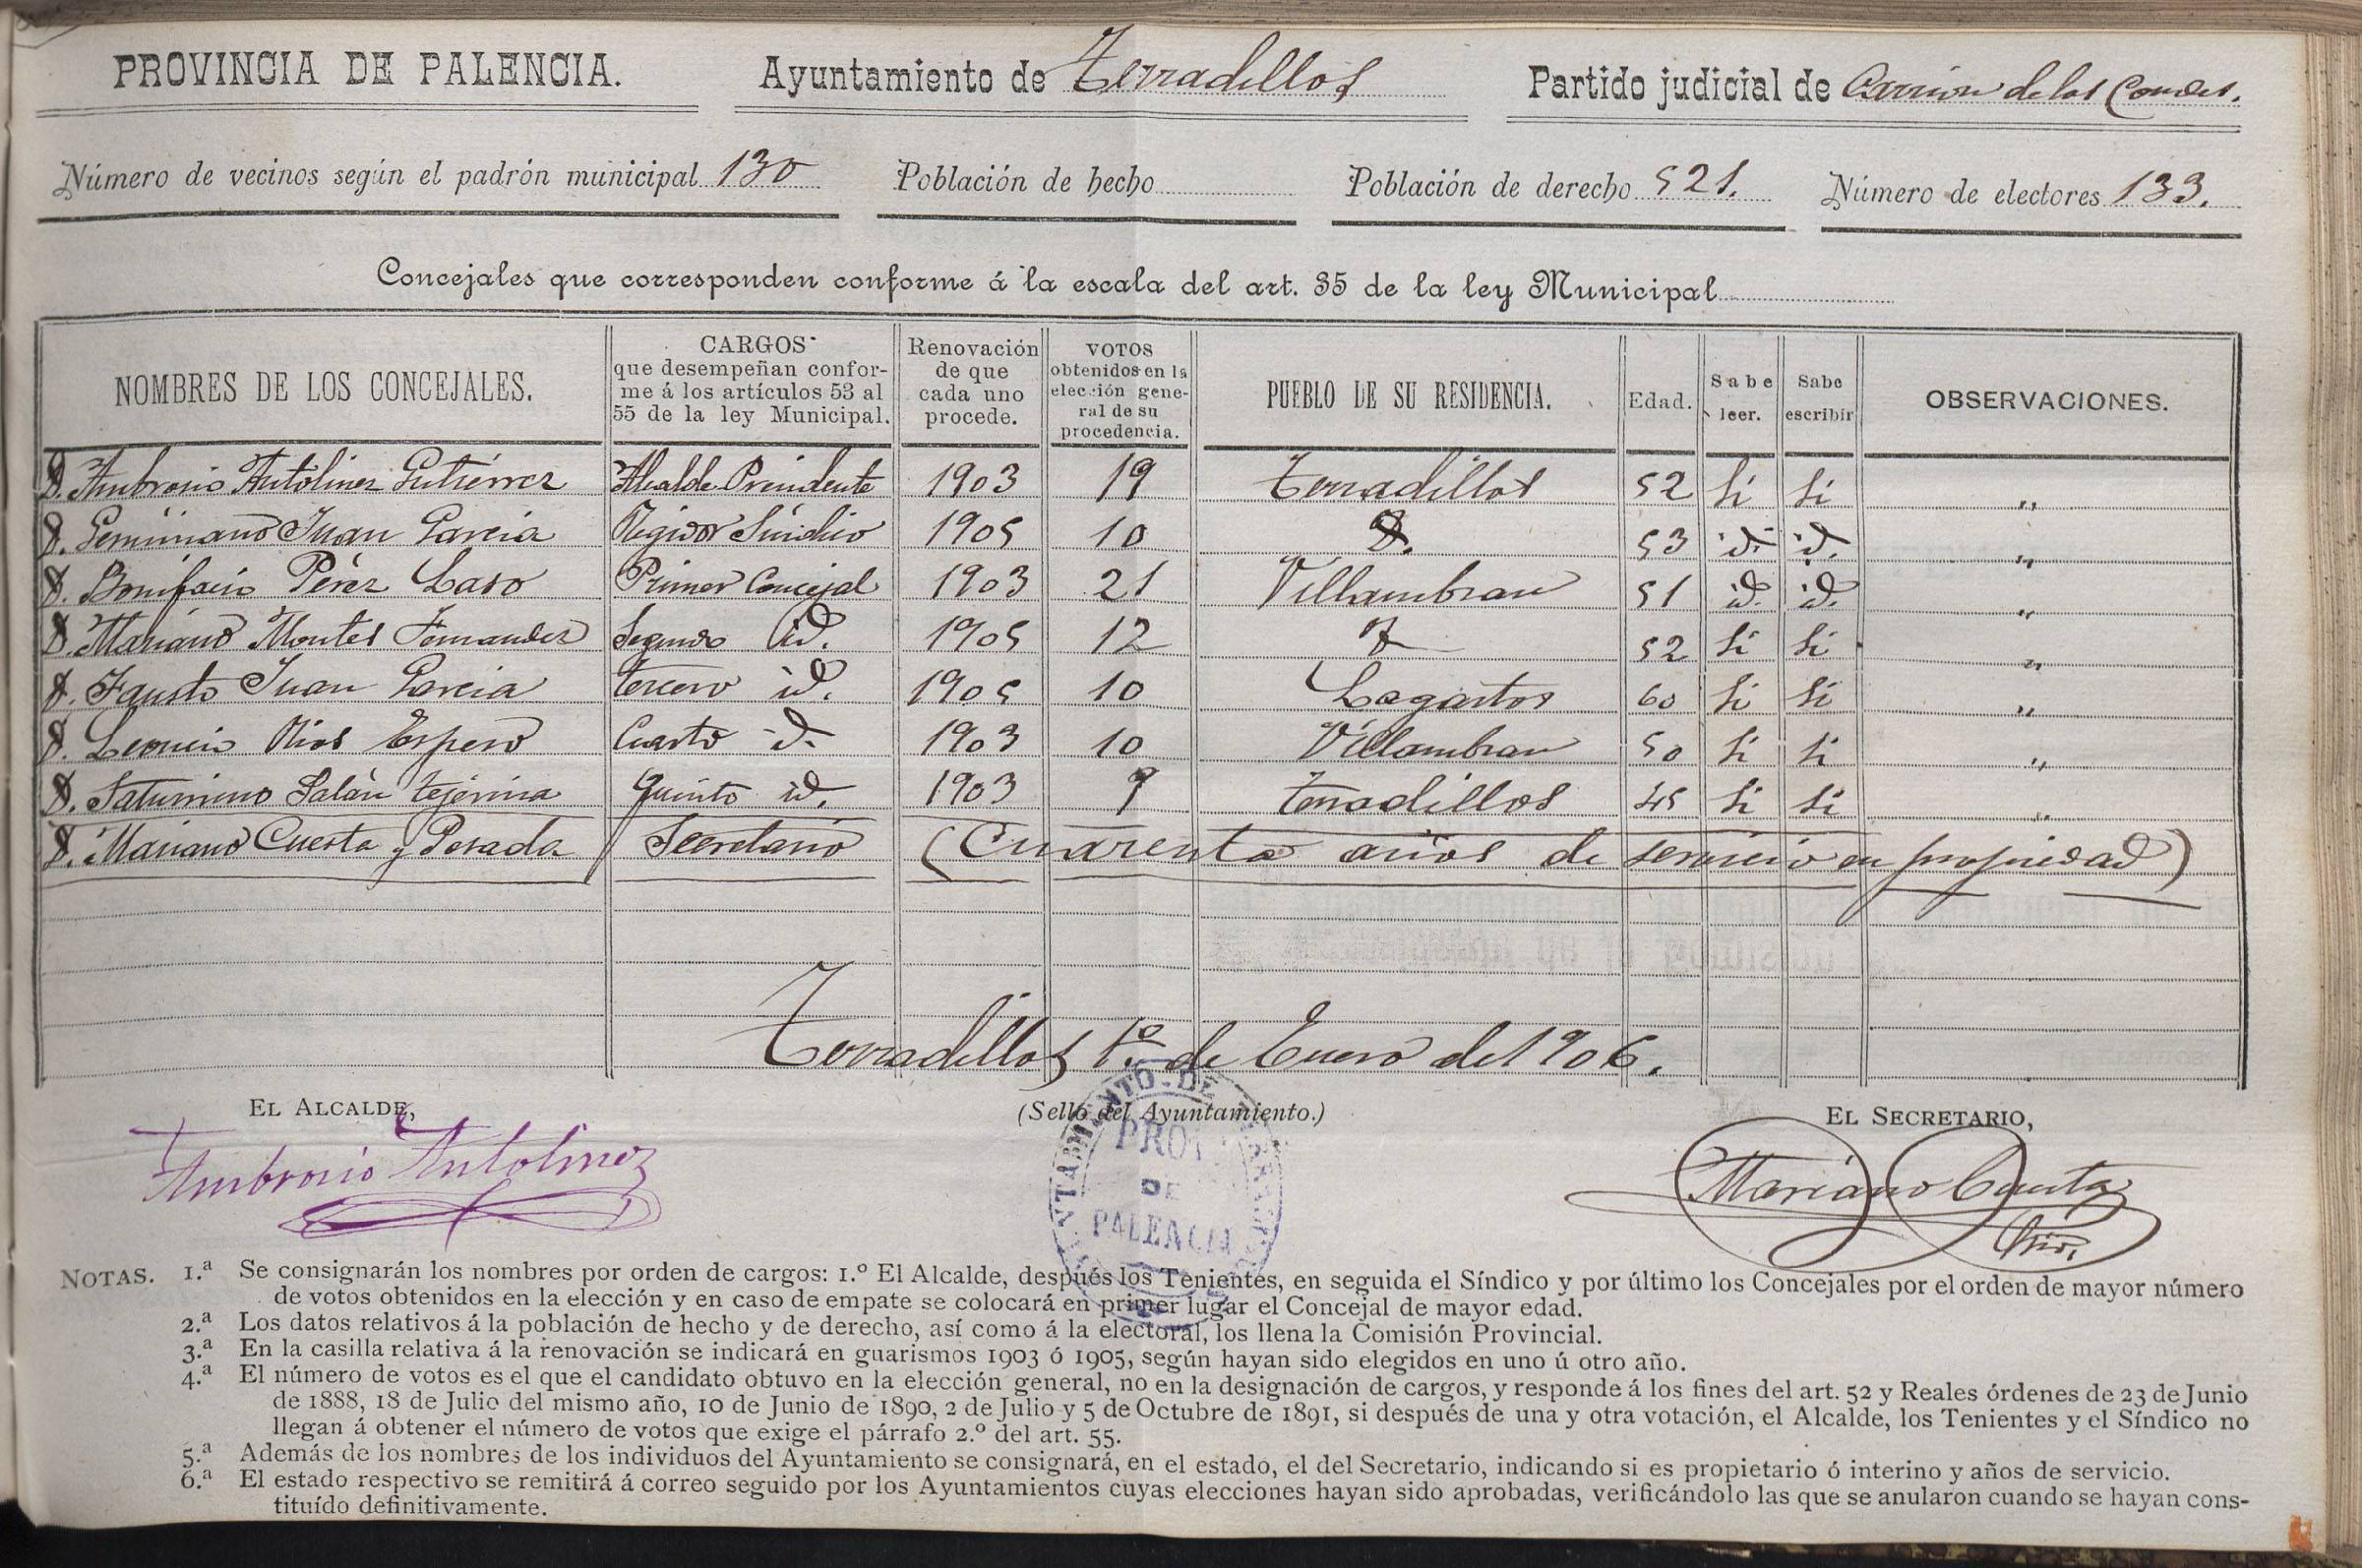 PROVINCIA DE PALENCIA. Ayuntamiento de Terradillos Partido judicial de Carrion de los Condes.
Número de vecinos según el padrón municipal 130 Población de hecho Población de derecho 521. Número de electores 133.
Concejales que corresponden conforme á la escala del art. 35 de la ley Municipal
NOMBRES DE LOS CONCEJALES. CARGOS que desempeñan conforme á los artículos 53 al 55 de la ley Municipal. Renovación de que cada uno procede. VOTOS obtenidos en la elección general de su procedencia. PUEBLO DE SU RESIDENCIA. Edad. Sabe leer. Sabe escribir OBSERVACIONES.
D. Ambrosio Antolinez Gutiérrez Alcalde Presidente 1903 19 Terradillos 52 Si Si "
D. Geminiano Juan Garcia Regidor Sindico 1905 10 53 id. id. "
D. Bonifacio Pérez Laso Primer Concejal 1903 21 Villambran 51 id. id. "
D. Mariano Montes Fernandez Segundo id. 1905 12 52 Si Si "
D. Fausto Juan Garcia tercero id. 1905 10 Lagartos 60 Si Si "
D. Leoncio Rios Espeso Cuarto id. 1903 10 Villambran 50 Si Si "
D. Saturnino Salán tejerina Quinto id. 1903 9 terradillos 45 Si Si "
D. Mariano Cuesta y Posada Secretario (Cuarenta años de servicio en propiedad)
Terradillos 1º de Enero de 1906.
EL ALCALDE, (Sello del Ayuntamiento.) EL SECRETARIO,
Ambrosio Antolinez
AYUNTAMIENTO DE
PROV.
DE
PALENCIA
Mariano Cuesta
NOTAS. 1.ª Se consignarán los nombres por orden de cargos: 1.º El Alcalde, después los Tenientes, en seguida el Síndico y por último los Concejales por el orden de mayor número
de votos obtenidos en la elección y en caso de empate se colocará en primer lugar el Concejal de mayor edad.
2.ª Los datos relativos á la población de hecho y de derecho, así como á la electoral, los llena la Comisión Provincial.
3.ª En la casilla relativa á la renovación se indicará en guarismos 1903 ó 1905, según hayan sido elegidos en uno ú otro año.
4.ª El número de votos es el que el candidato obtuvo en la elección general, no en la designación de cargos, y responde á los fines del art. 52 y Reales órdenes de 23 de Junio
de 1888, 18 de Julio del mismo año, 10 de Junio de 1890, 2 de Julio y 5 de Octubre de 1891, si después de una y otra votación, el Alcalde, los Tenientes y el Síndico no
llegan á obtener el número de votos que exige el párrafo 2.º del art. 55.
5.ª Además de los nombres de los individuos del Ayuntamiento se consignará, en el estado, el del Secretario, indicando si es propietario ó interino y años de servicio.
6.ª El estado respectivo se remitirá á correo seguido por los Ayuntamientos cuyas elecciones hayan sido aprobadas, verificándolo las que se anularon cuando se hayan cons-
tituído definitivamente.